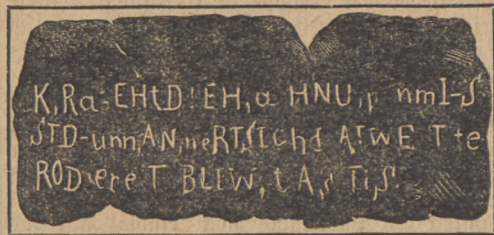 K,Ra-EHtD!EH,a HNU,p nmI-S
STD-unn,AN,neRT,SIGhd A!WE T te
ROD'ere'T BLIW,t A,s Ti,S.